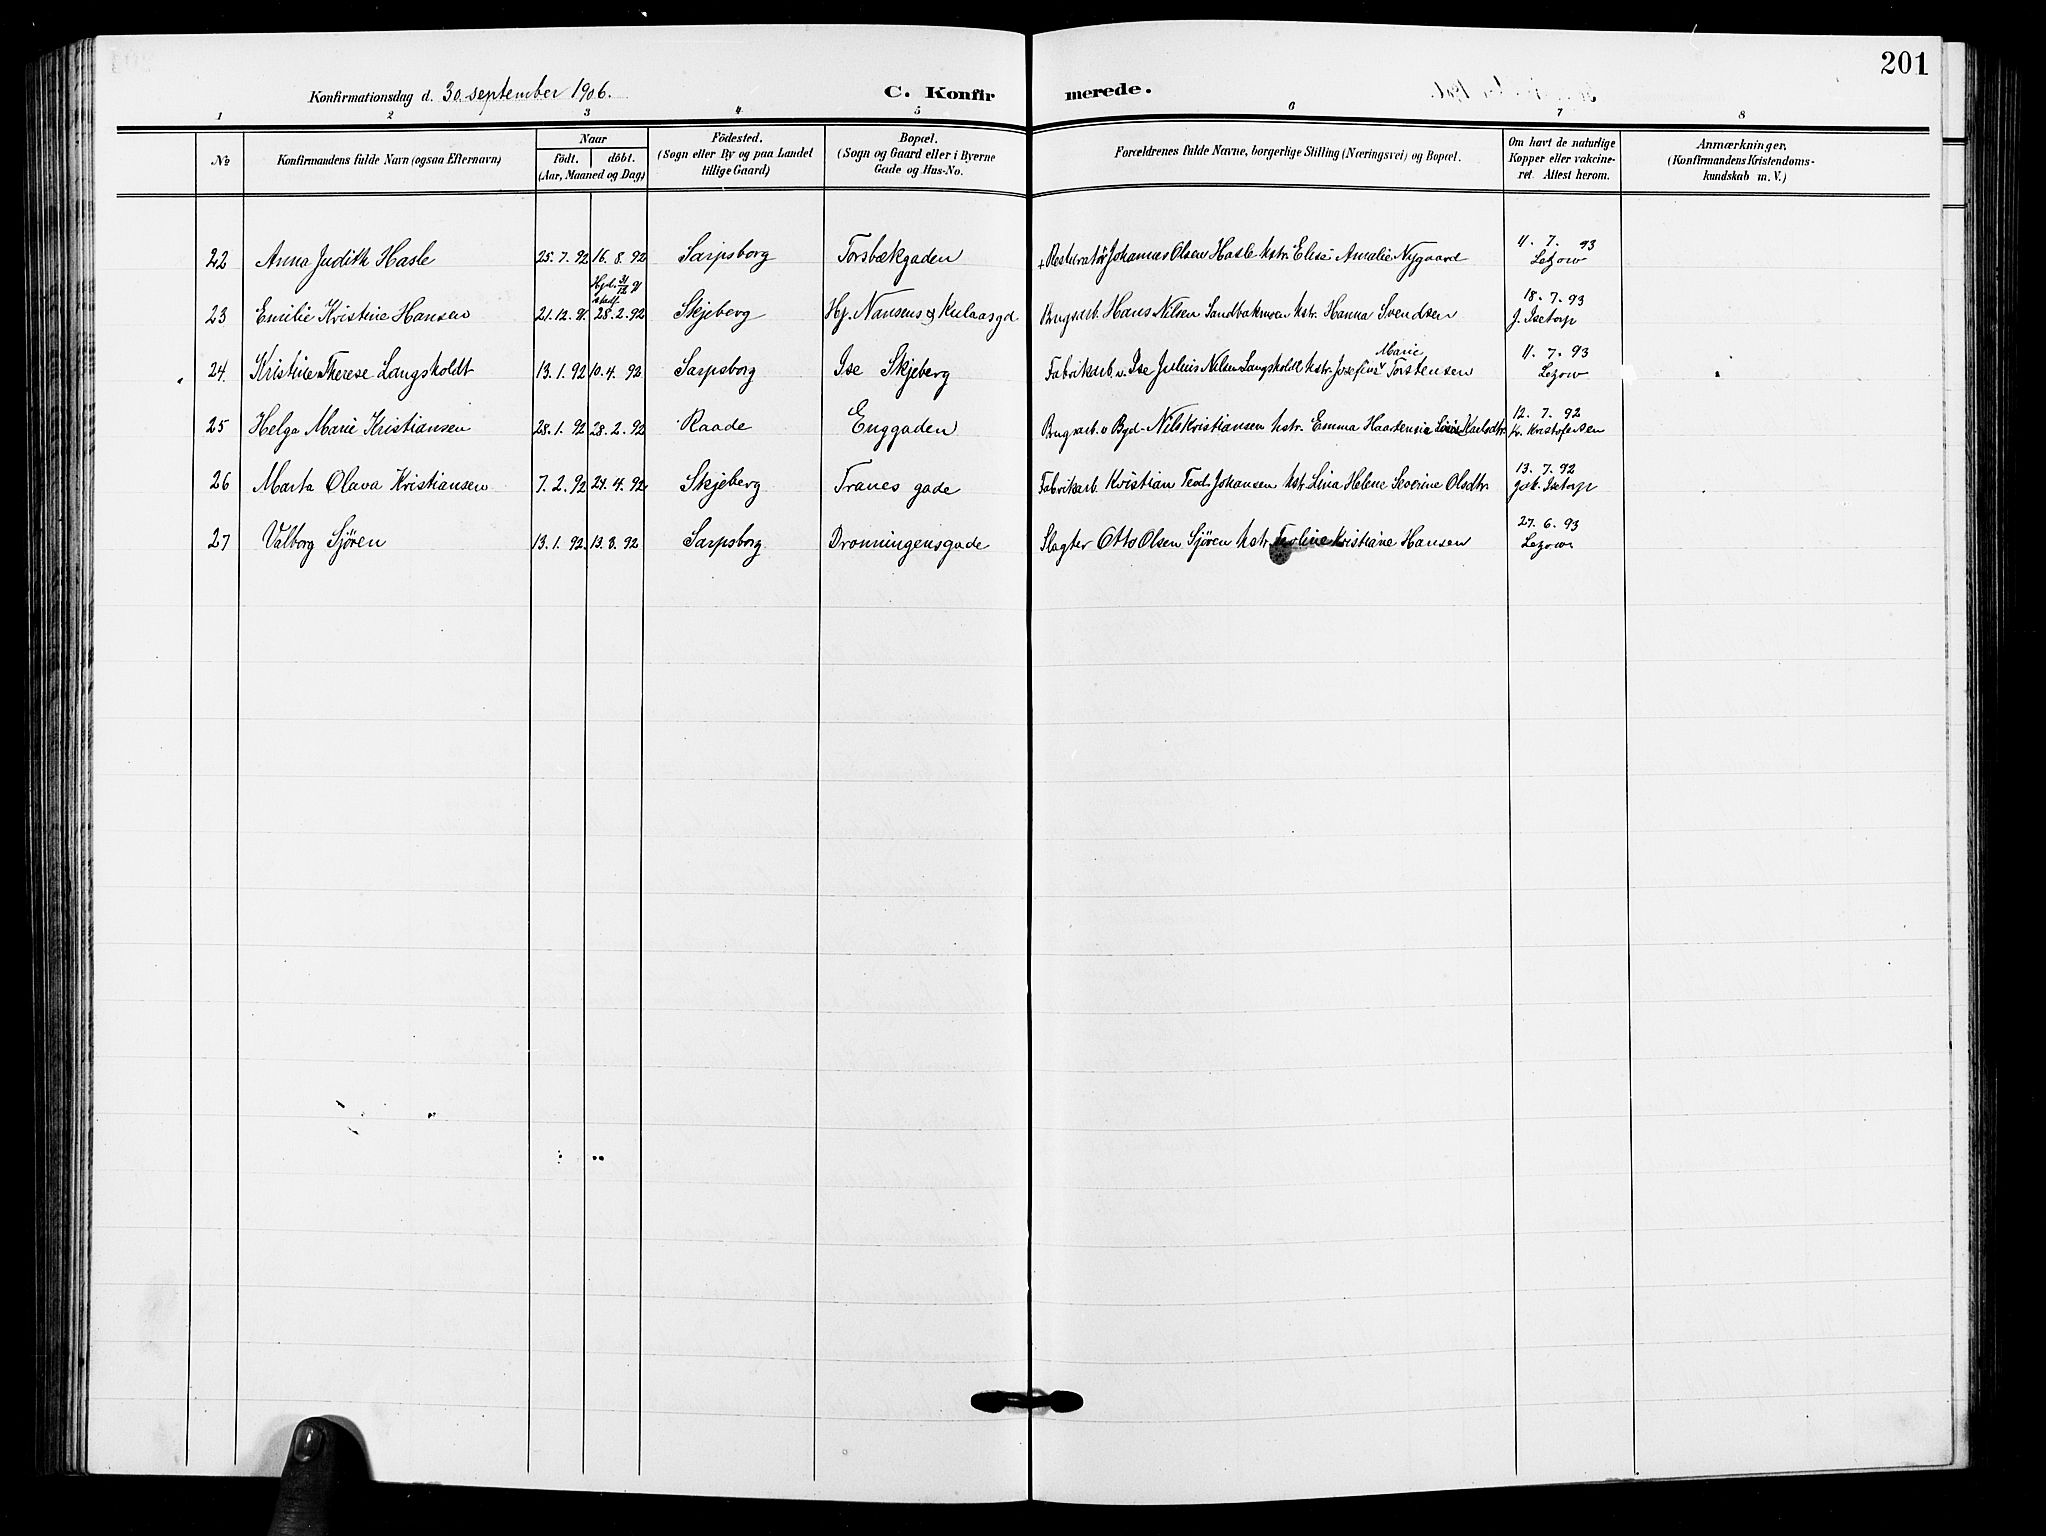 201
Konfirmationsdag d. 30. september 1906.
C. Konfirmerede.
1 2 3 4 5 6 7 8
No
Konfirmandens fulde Navn (ogsaa Efternavn)
Naar
født. døbt.
(Aar, Maaned og Dag)
Födested.
(Sogn eller By og paa Landet
tillige Gaard)
Bopæl.
(Sogn og Gaard eller i Byerne
Gade og Hus-No.
Forældrenes fulde Navne, borgerlige Stilling (Næringsvei) og Bopæl.
Om havt de naturlige
Kopper eller vakcine-
ret. Attest herom.
Anmærkninger.
(Konfirmandens Kristendoms-
kundskab m. V.)
22 Anna Judith Hasle 25. 7. 92 16. 8. 92 Sarpsborg Torsbækgaden + Resturatør Johannes Olsen Hasle hstr. Elise Amalie Nygaard 11. 7. 93
Letzow
Hjd. 31/12 91
stadf.
23 Emilie Kristine Hansen 21. 12. 91. 28. 2. 92 Skjeberg Hj. Nansens & Kulaasgd Brugsarb. Hans Nilsen Sandbakmoen hstr. Hanna Svendsen 18. 7. 93
J. Isetorp
Marie
24. Kristine Therese Langsholdt 13. 1. 92 10. 4. 92 Sarpsborg Ise Skjeberg Fabrikarb. v. Ise Julius Nilsen Langsholdt hstr. Josefine Torstensen 11. 7. 93
Letzow
25 Helga Marie Kristiansen 28. 1. 92 28. 2. 92 Raade Enggaden Brugsarb. v Byd- Nils Kristiansen hstr. Emma Karlsdtr. 12. 7. 92
Kr. Kristofersen
26 Marta Olava Kristiansen 7. 2. 92 24. 4. 92 Skjeberg Tranes gade Fabrikarb. Kristian Teod. Johansen hstr. Lina Helene Severine Olsdtr. 13. 7. 92
Joh. Isetorp
27 Valborg Sjøren 13. 1. 92. 13. 3. 92 Sarpsborg Dronningensgade Slagter Otto Olsen Sjøren hstr. Kristiane Hansen 27. 6. 93
Letzow